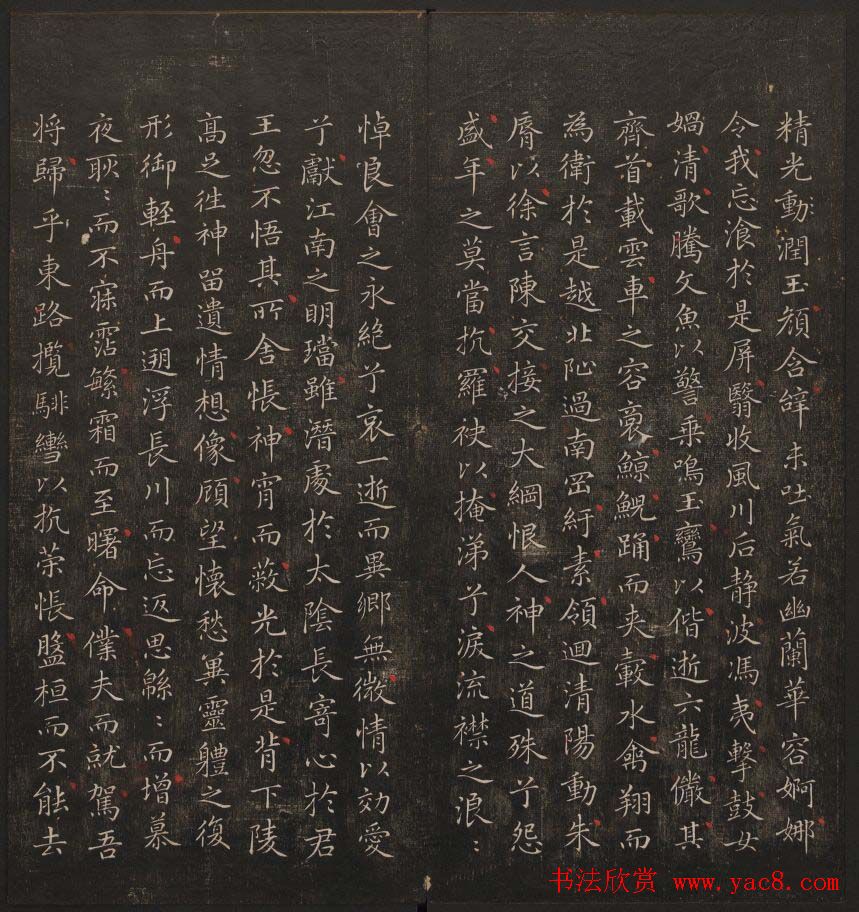 精光動潤玉顏含辝未吐氣若幽蘭華容婀娜
令我忘湌於是屏翳收風川后静波馮夷擊鼓女
媧清歌騰文魚以警乗鳴玉鸞以偕逝六龍儼其
齊首載雲車之容裔鯨鯢踊而夹轂水禽翔而
為衛於是越北沚過南罡紆素領迴清陽動朱
脣以徐言陳交接之大綱恨人神之道殊兮怨
盛年之莫當抗羅袂以掩涕兮淚流襟之浪〻
悼良會之永絶兮哀一逝而異鄉無微情以効愛
兮獻江南之明璫雖潛處於太陰長寄心於君
王忽不悟其所舍悵神宵而蔽光於是背下陵
高足往神留遺情想像顧望懷愁兾靈軆之復
形御軽舟而上遡浮長川而忘返思緜〻而增慕
夜耿〻而不寐霑繁霜而至曙命僕夫而就駕吾
将歸乎東路攬騑轡以抗荣悵盤桓而不能去
书法欣赏 www.yac8.com